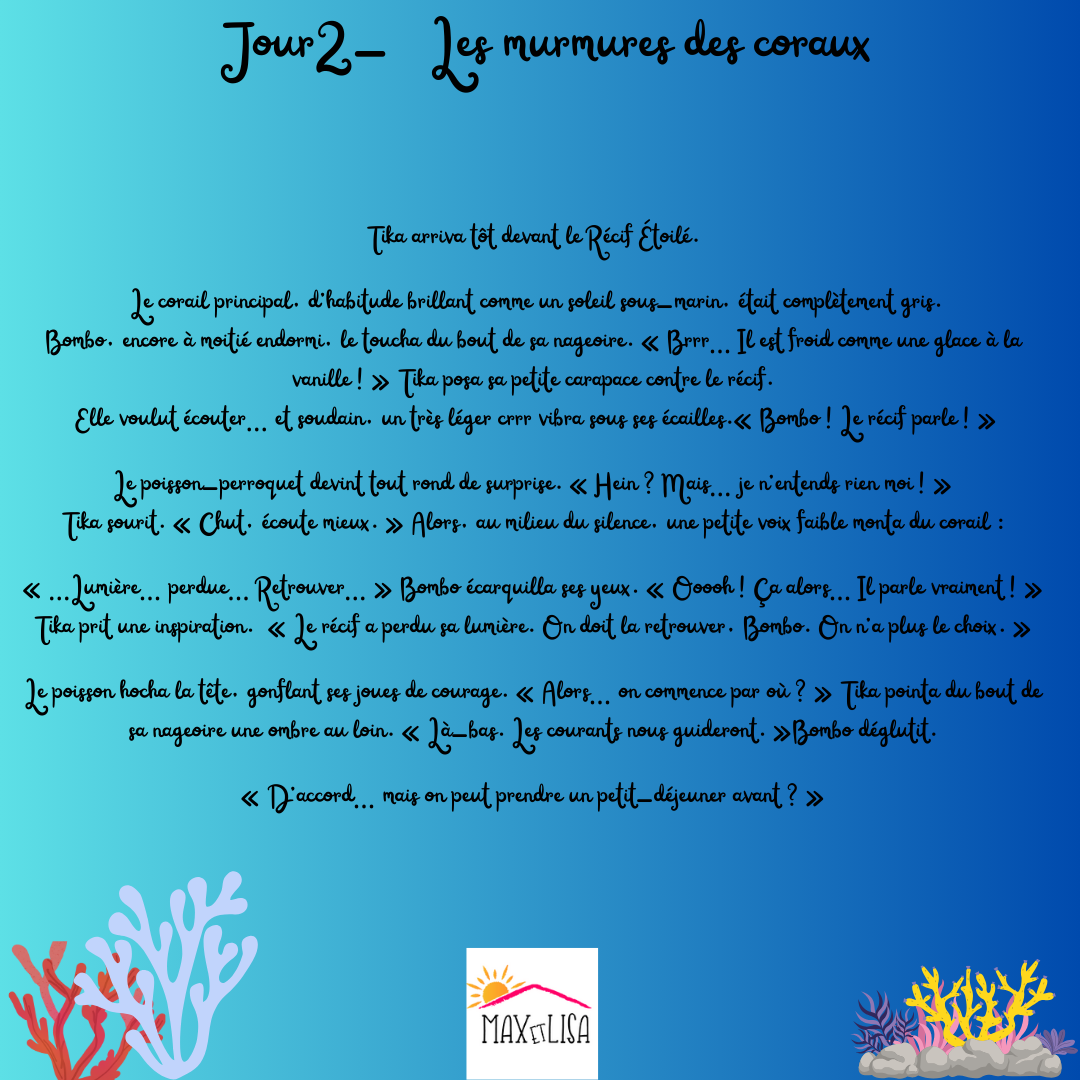 Jour2- Les murmures des coraux
Tika arriva tôt devant le Récif Étoilé.
Le corail principal, d'habitude brillant comme un soleil sous-marin, était complètement gris.
Bombo, encore à moitié endormi, le toucha du bout de sa nageoire. « Brrr... Il est froid comme une glace à la
vanille ! » Tika posa sa petite carapace contre le récif.
Elle voulut écouter... et soudain, un très léger crrr vibra sous ses écailles.« Bombo ! Le récif parle ! »
Le poisson-perroquet devint tout rond de surprise. « Hein ? Mais... je n'entends rien moi ! »
Tika sourit. « Chut, écoute mieux. » Alors, au milieu du silence, une petite voix faible monta du corail :
« ...Lumière... perdue... Retrouver... » Bombo écarquilla ses yeux. « Ooooh ! Ça alors... Il parle vraiment ! »
Tika prit une inspiration. « Le récif a perdu sa lumière. On doit la retrouver, Bombo. On n'a plus le choix. »
Le poisson hocha la tête, gonflant ses joues de courage. « Alors... on commence par où ? » Tika pointa du bout de
sa nageoire une ombre au loin. « Là-bas. Les courants nous guideront. »Bombo déglutit.
« D'accord... mais on peut prendre un petit-déjeuner avant ? »
MAX ET LISA